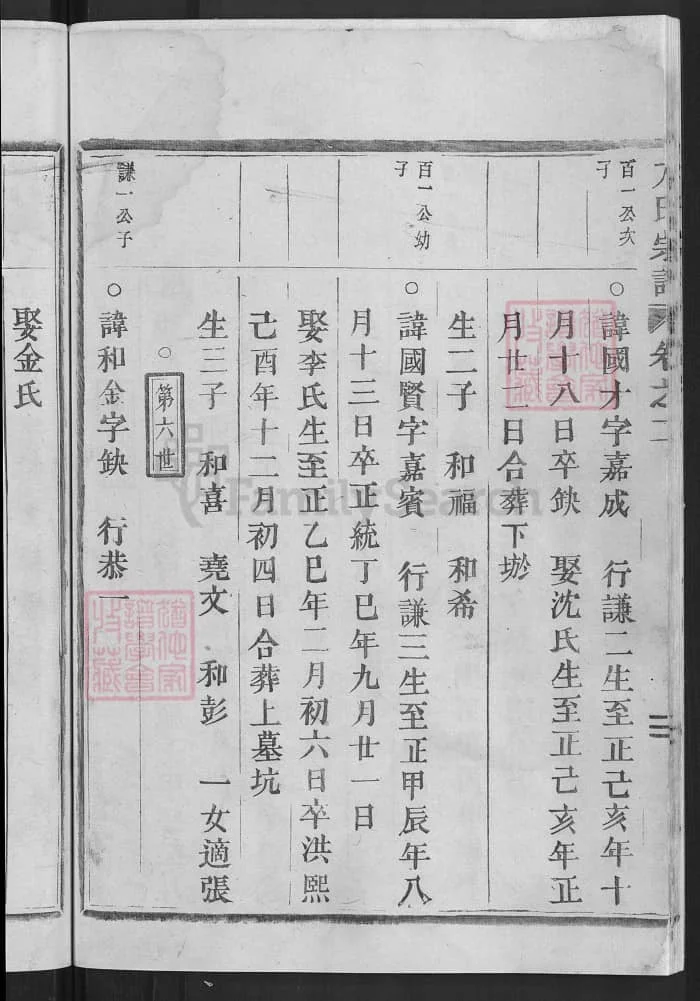 氏宗譜 卷之二
百一公次子
○諱國才字嘉成 行謙二生至正己亥年十
月十八日卒缺 娶沈氏生至正己亥年正
月廿二日合葬下塝
生二子 和福 和希
百一公幼子
○諱國賢字嘉賓 行謙三生至正甲辰年八
月十三日卒正統丁巳年九月廿一日
娶李氏生至正乙巳年二月初六日卒洪熙
己酉年十二月初四日合葬上墓坑
生三子 和喜 堯文 和彭 一女適張
○第六世
謙一公子
○諱和金字缺 行恭一
娶金氏
FamilySearch